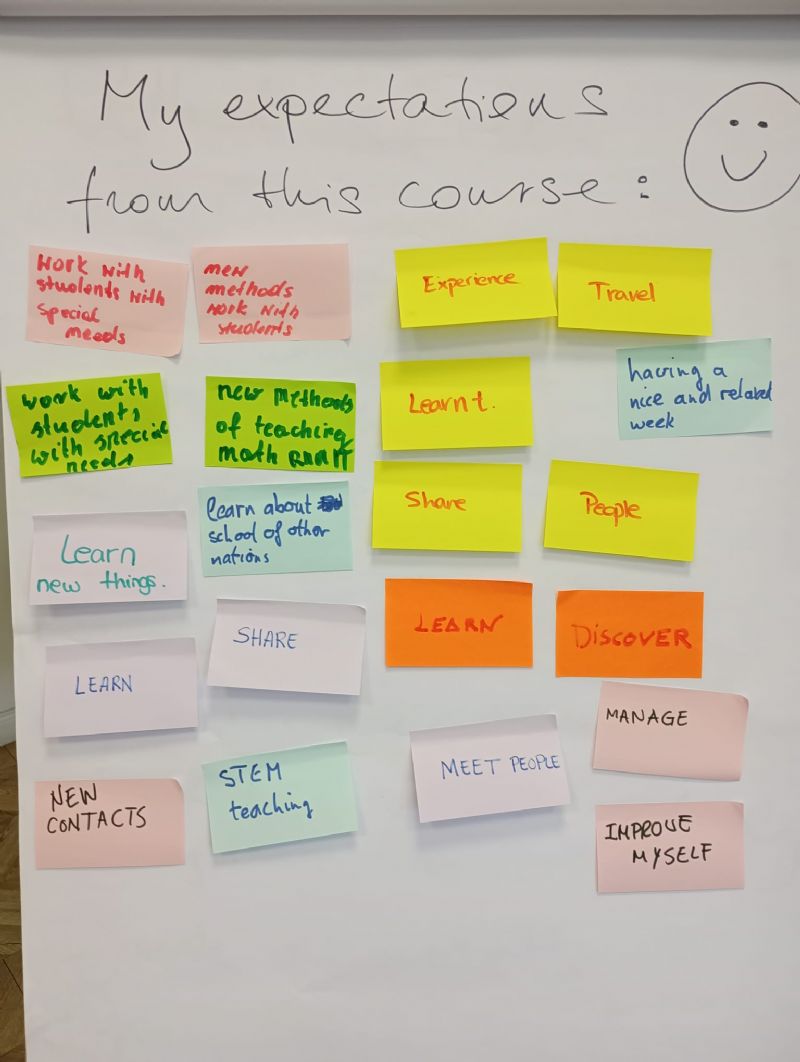 My expectations
from this course:
Work with
students with
special
needs
new
methods
work with
students
Experience
Travel
work with
students
with special
needs
new methods
of teaching
math
Learnt.
having a
nice and relaxed
week
Learn
new things.
learn about
school of other
nations
Share
People
LEARN
SHARE
LEARN
DISCOVER
NEW
CONTACTS
STEM
teaching
MEET PEOPLE
MANAGE
IMPROVE
MYSELF